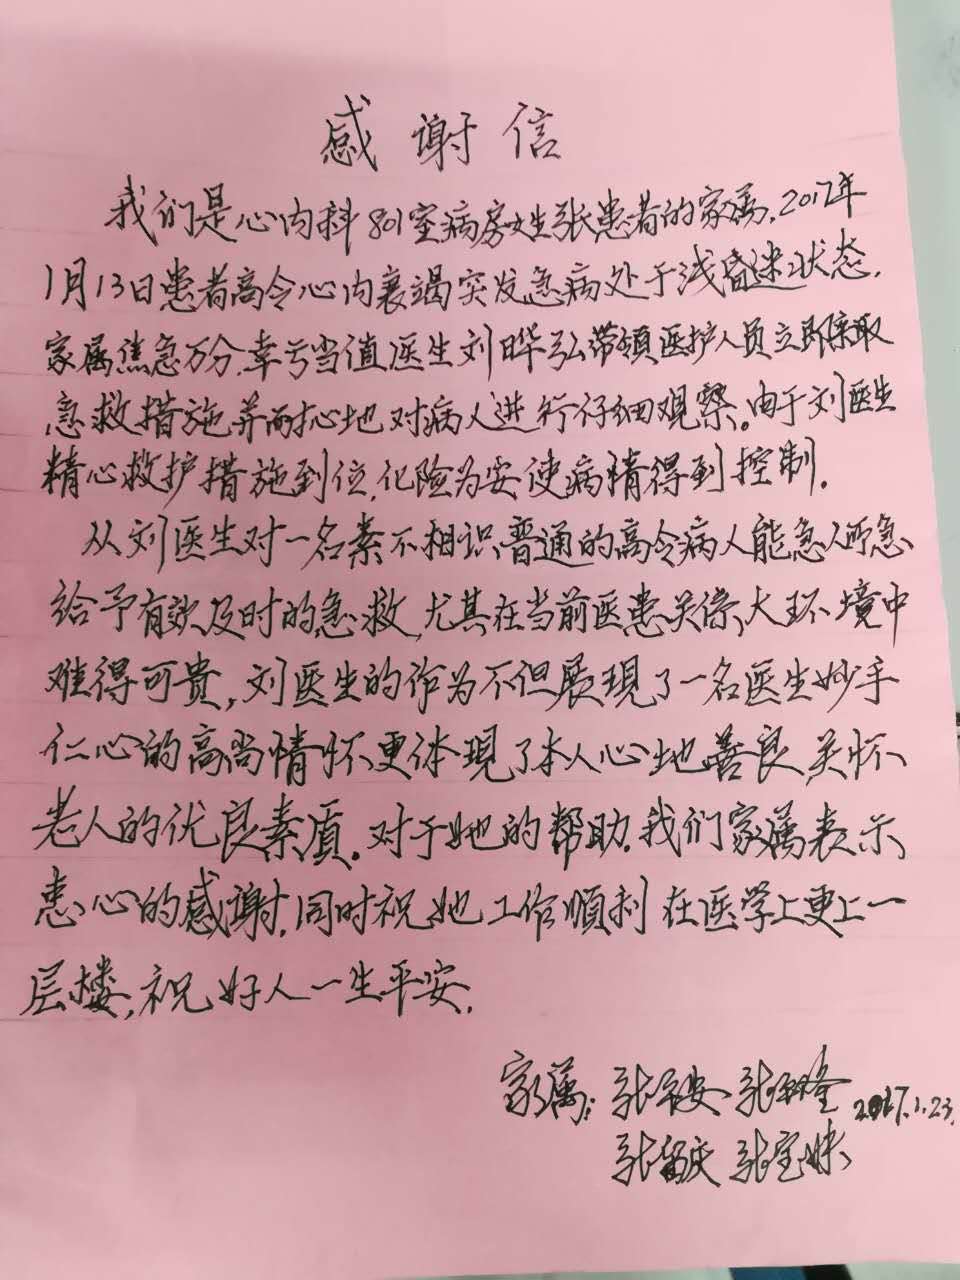 感谢信
我们是心内科801室病房女生张患者的家属,2017年
1月13日患者高令心内衰竭突发急病处于浅昏迷状态,
家属焦急万分,幸亏当值医生刘晔弘带领医护人员立即采取
急救措施并耐心地对病人进行仔细观察。由于刘医生
精心救护措施到位,化险为安使病情得到控制.
从刘医生对一名素不相识普通的高令病人能急人所急
给予有效及时的急救,尤其在当前医患关系大环境中
难得可贵,刘医生的作为不但展現了一名医生妙手
仁心的高尚情怀更体現了本人心地善良,关怀
老人的优良素质。对于她的帮助.我们家属表示
衷心的感谢,同时祝她工作順利在医学上更上一
层楼,祝好人一生平安.
家属:张平安 张 2017.1.23.
张留庆 张宝妹